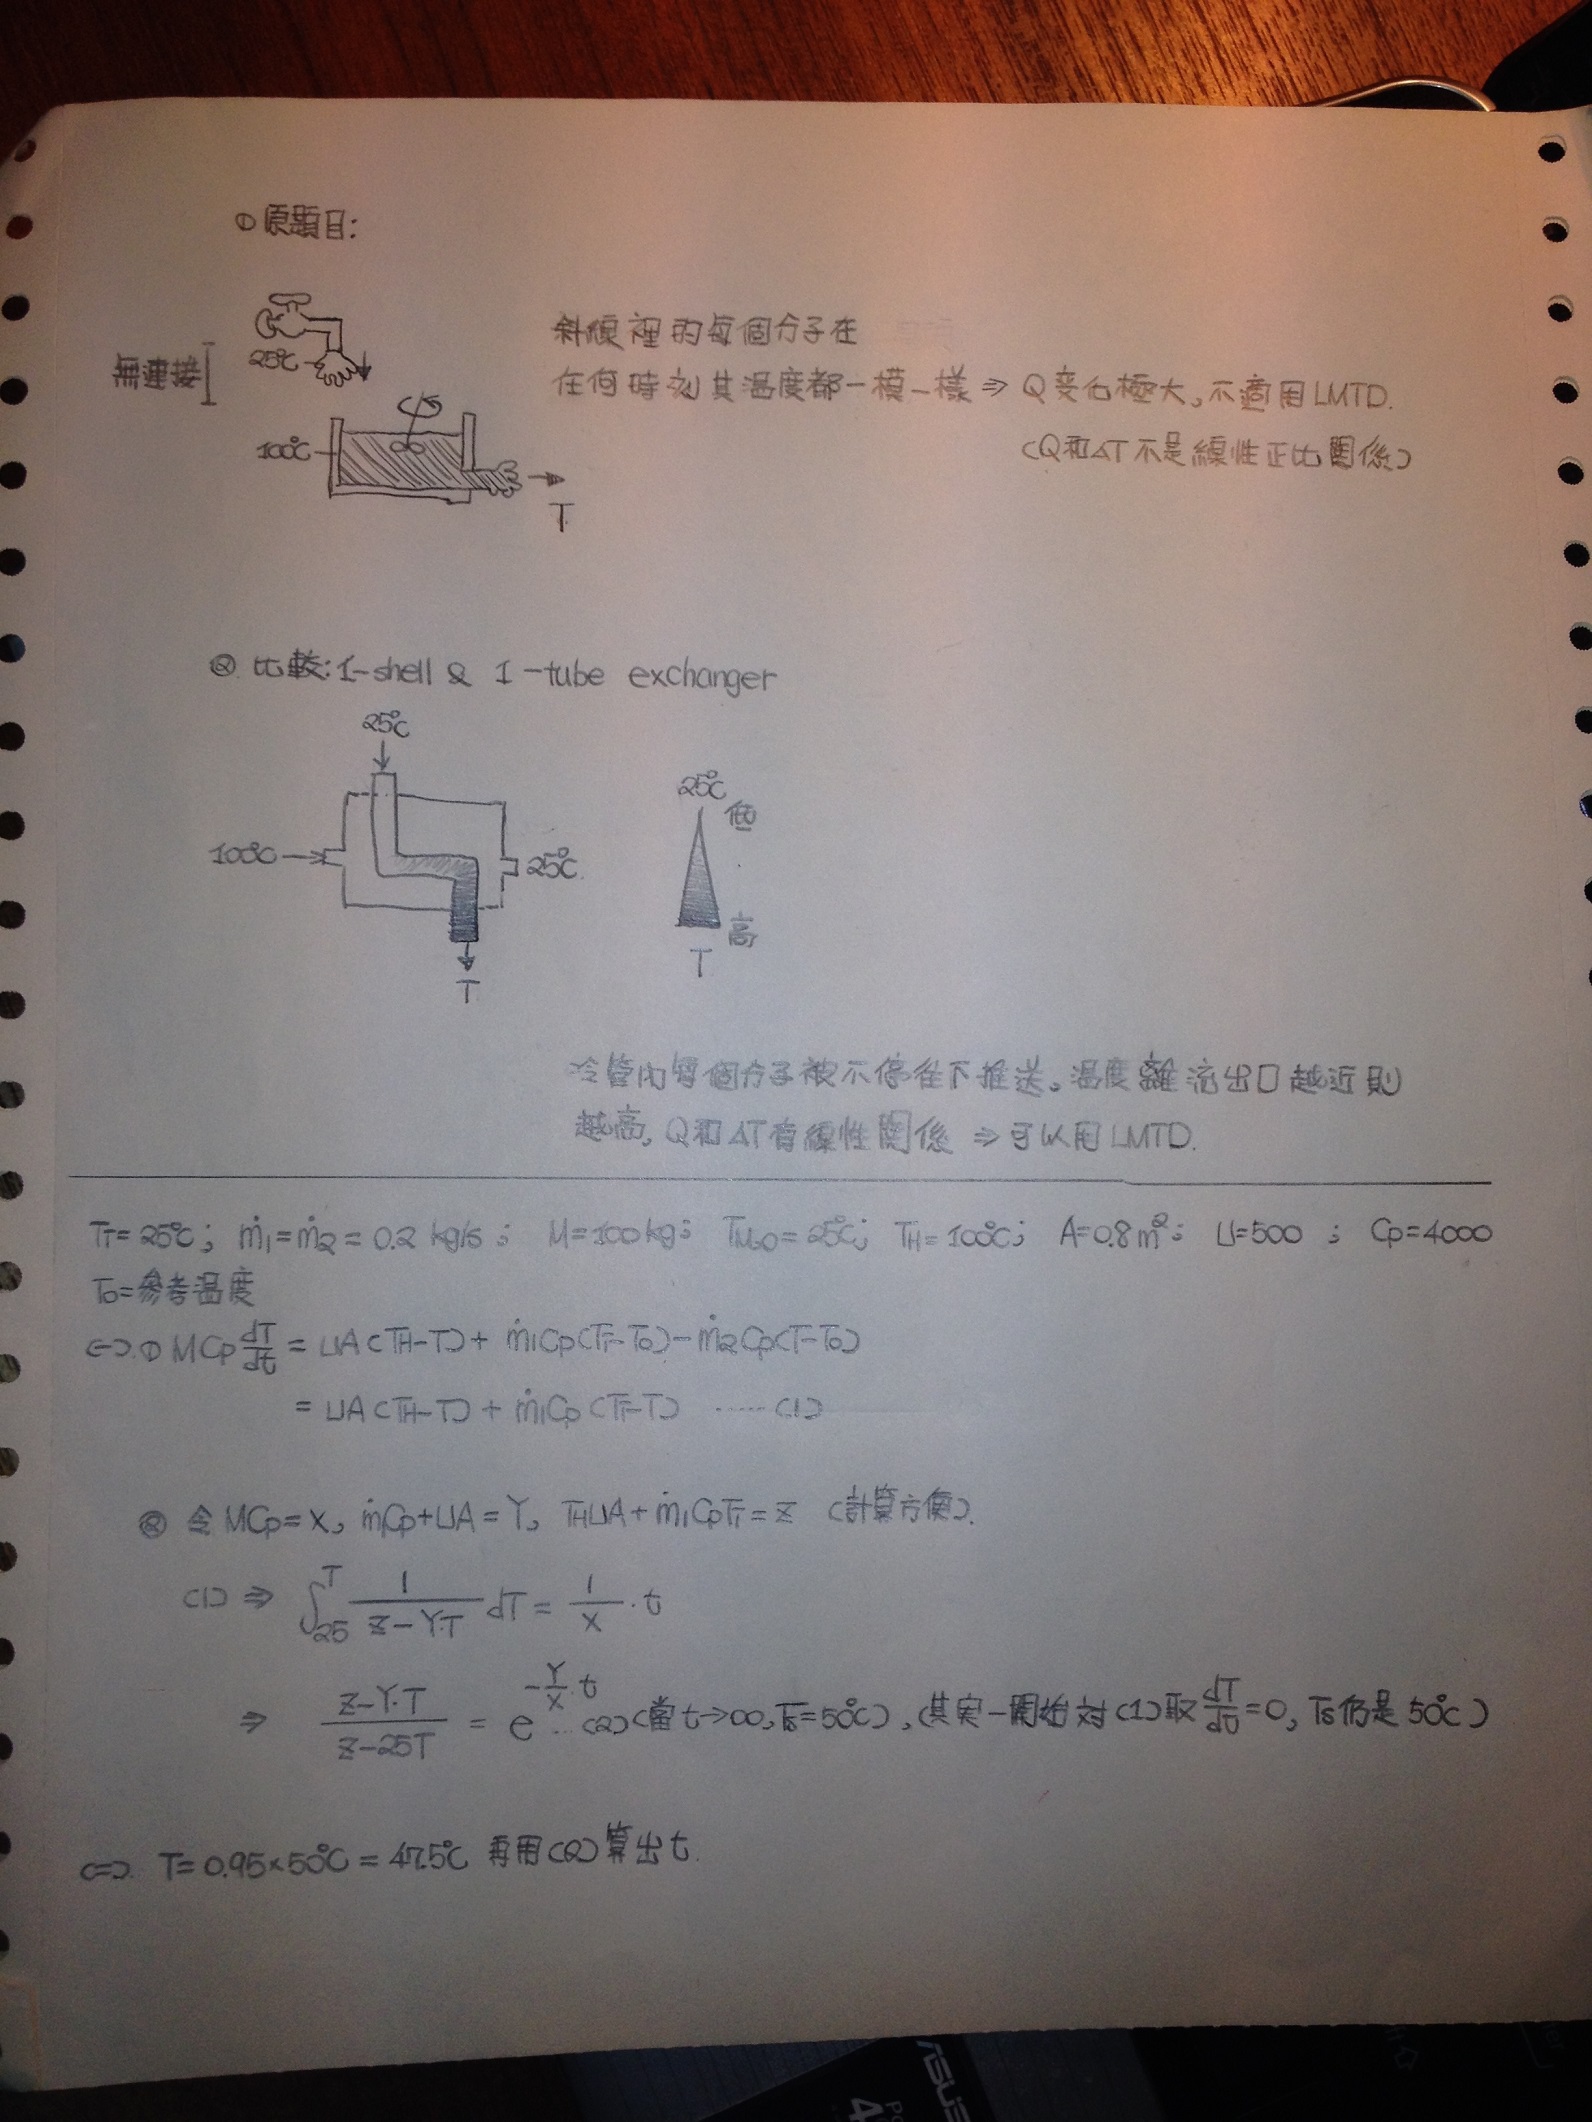 ① 原題目:
25℃
無連接
100℃
T
斜線裡的每個分子在
在何時刻其溫度都一模一樣 ⇒ Q变化極大,不適用LMTD.
(Q和ΔT不是線性正比關係)
② 比較: 1-shell & 1-tube exchanger
25℃
100℃
25℃
T
25℃
低
高
T
冷管內每個分子被不停往下推送。溫度離流出口越近則
越高, Q和ΔT有線性關係 ⇒ 可以用LMTD.
T_F=25℃; ṁ₁=ṁ₂=0.2 kg/s; M=100kg; T_M,0=25℃; T_H=100℃; A=0.8m²; U=500 ; Cp=4000
T₀=參考溫度
(一).① MCp dT/dt = UA(T_H-T)+ṁ₁Cp(T_F-T₀)-ṁ₂Cp(T-T₀)
= UA(T_H-T)+ṁ₁Cp(T_F-T) ......(1)
② 令MCp=X, ṁ₁Cp+UA=Y, T_HUA+ṁ₁CpT_F=Z (計算方便).
(1) ⇒ ∫₂₅^T 1/(Z-Y·T) dT = 1/X · t
⇒ (Z-Y·T)/(Z-25T) = e^(-Y/X·t) ...(2)(當t→∞,Ts=50℃),(其実一開始対(1)取dT/dt=0, Ts仍是50℃)
(二). T=0.95×50℃=47.5℃ 再用(2)算出t.
ASUS
4